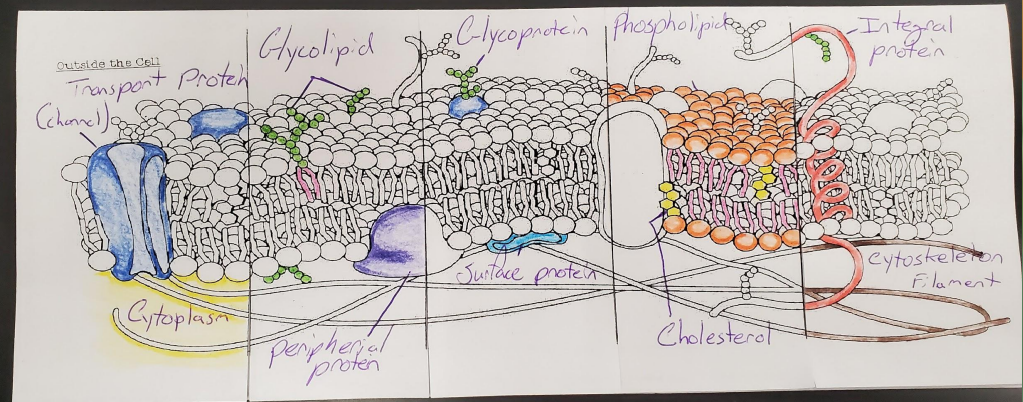 Outside the Cell
Transport Protein
(channel)
Glycolipid
Glycoprotein
Phospholipid
Integral
protein
Cytoplasm
peripherial
protein
Surface protein
Cholesterol
Cytoskeleton
Filament